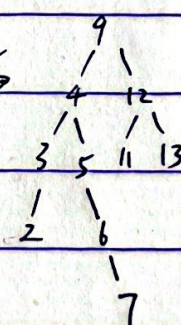 9
4 12
3 5 11 13
2 6
7